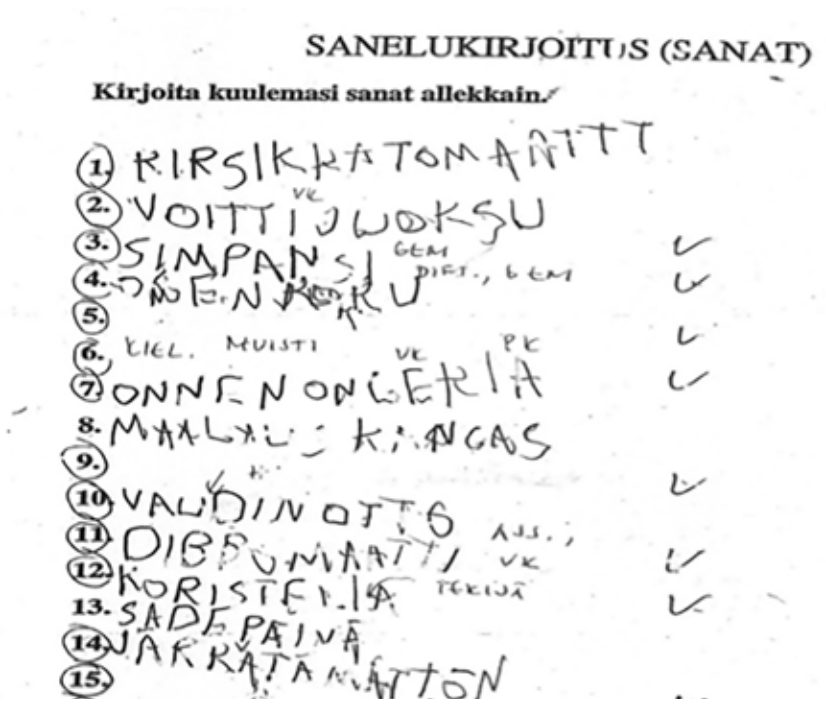 SANELUKIRJOITUS (SANAT)
Kirjoita kuulemasi sanat allekkain.
1. KIRSIKKATOMAATTT
VK
2. VOITTIJUOKSU
3. SIMPANSI GEM
4. DIFT., GEM
5.
6. KIEL. MUISTI VK PK
7. ONNENONGERIA
8. KANGAS
9.
10. VAUDINOTTO
11. DIBBUMAATTI ASS., VK
12. KORISTELIA TEKIJÄ
13. SADEPÄIVÄ
14. JÄRKÄTÄMÄTTÖN
15.